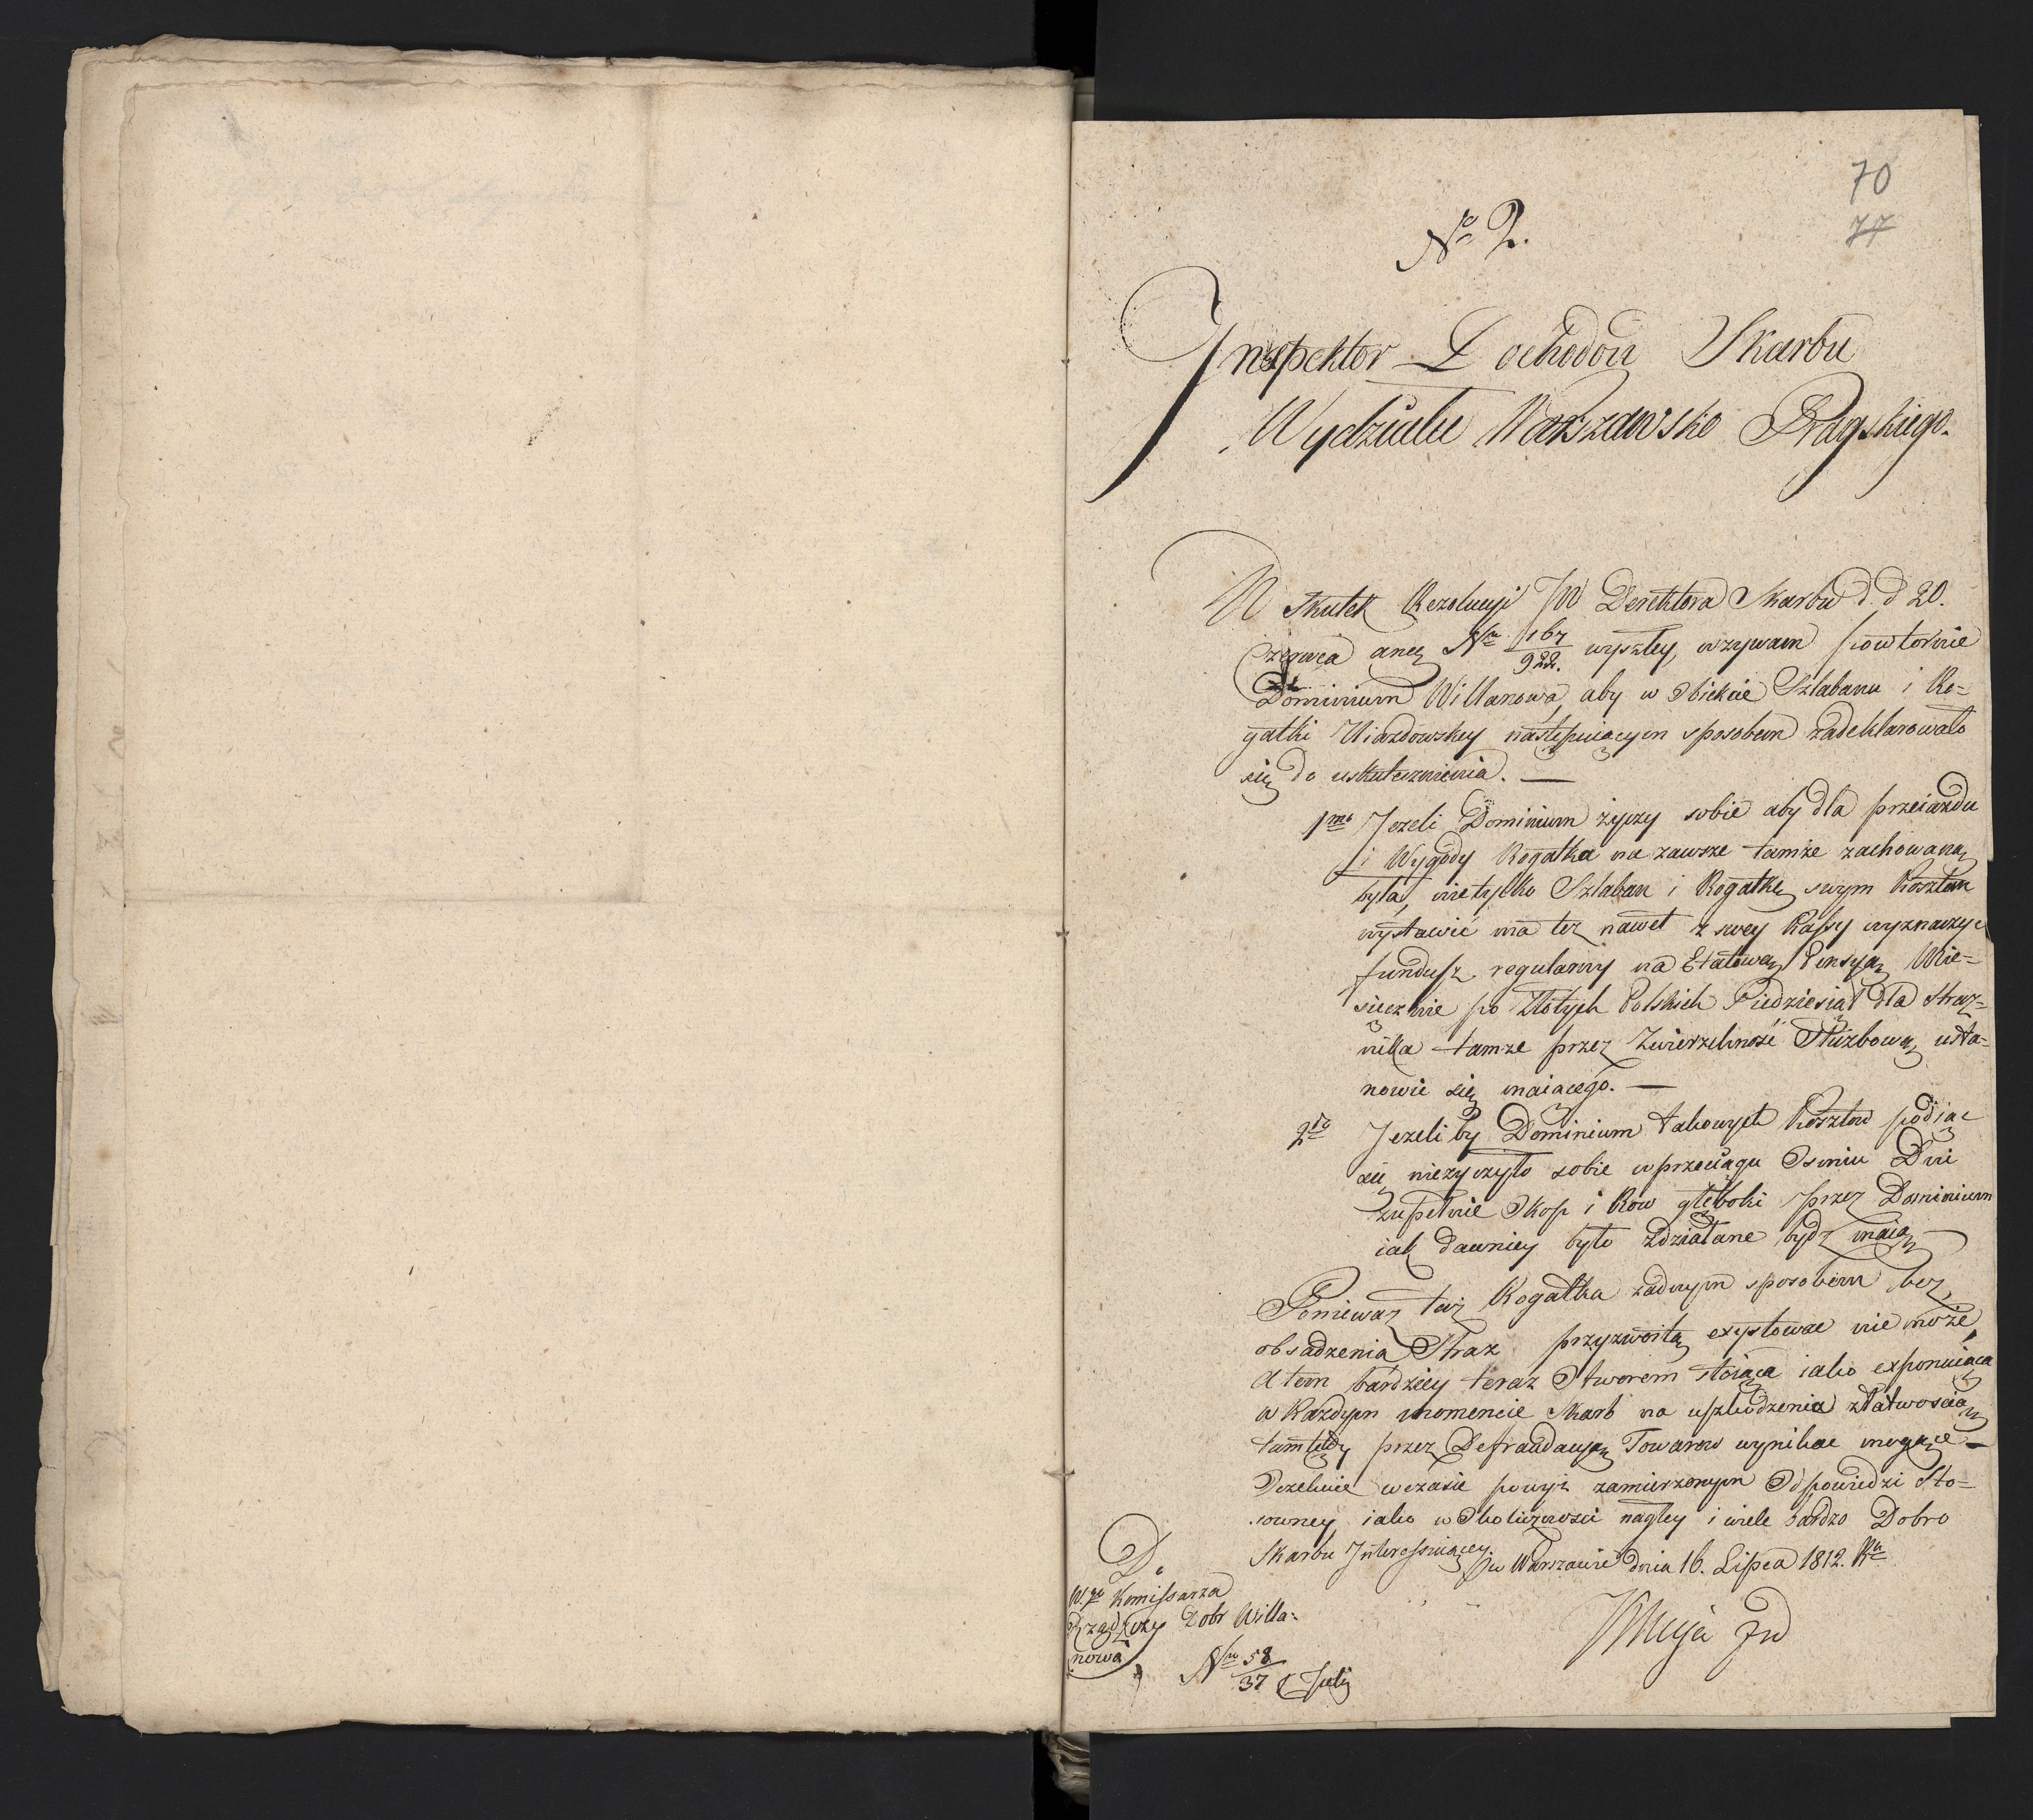 70
77
No 2.
Inspektor Dochodow Skarbu
Wydziału Warszawsko Pragskiego.
W Skutek Rezolucyi JW Derektora Skarbu d. d 20.
Czerwca anc Nro 167/922. wyszłey, wzywam powtornie
Dominium Willanowa, aby w Obiekcie Szlabanu i Ro=
gatki Uiazdowskey następuiącym sposobem zadeklarowało
się do uskutecznienia. —
1mo Jezeli Dominium życzy sobie aby dla przeiazdu
i Wygody Rogatka na zawsze tamże zachowaną
była, nietylko Szlaban i Rogatkę swym Kosztem
wystawić ma też nawet z swey Kassy wyznaczyc
fundusz regularny na Etatową Pensyą Mie=
siecznie po Złotych Polskich Piedziesiąt dla Straz=
nika tamze przez Zwierzchność Służbową usta=
nowic się maiącego. —
2do Jezeli by Dominium takowych Kosztow podiąc
się nieżyczyło sobie w przeciągu Osmiu Dni
zupełnie Okop i Row głęboki przez Dominium
iak dawniey było zdziałane bydz maią
Poniewaz taż Rogatka zadnym sposobem bez
obsadzenia Straz przyzwoitą exystowac nie może,
a tem bardziey teraz Otworem stoiąca iako exponuiąca
w Kazdym momencie Skarb na uszkodzenia z łatwoscią
tamtędy przez Defraudacyą Towarow wynikac mogące —
Oczekuie wczasie powyż zamierzonym Odpowiedzi Sto=
sowney iako w Okoliczności nagłey i wiele bardzo Dobro
Skarbu Interessuiącey.
w Warszawie dnia 16. Lipca 1812. Ru
Do
W.go Komissarza
Rządzcy Dobr Willa=
nowa
Nro 58/37 Julij